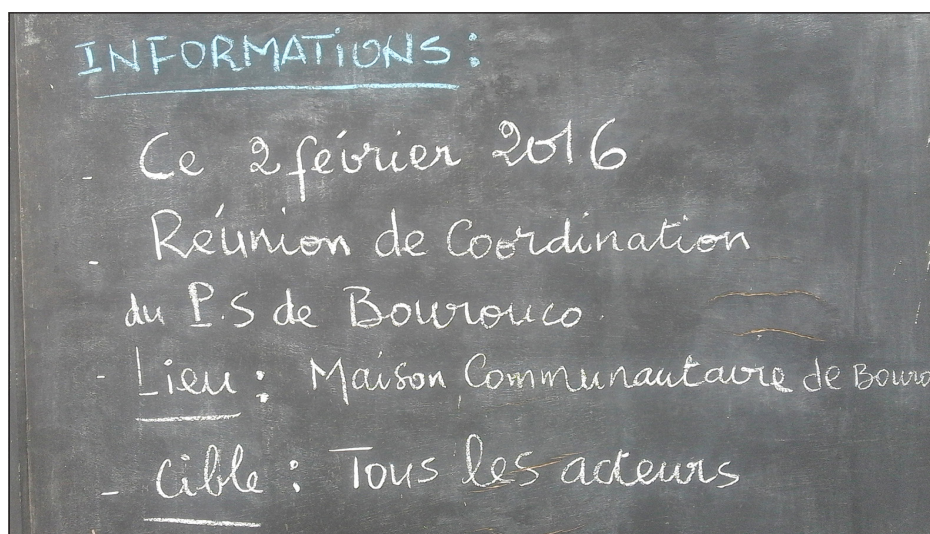 INFORMATIONS :
- Ce 2 février 2016
- Réunion de Coordination
du P.S de Bourouco
- Lieu : Maison Communautaire de Bouro
- Cible : Tous les acteurs